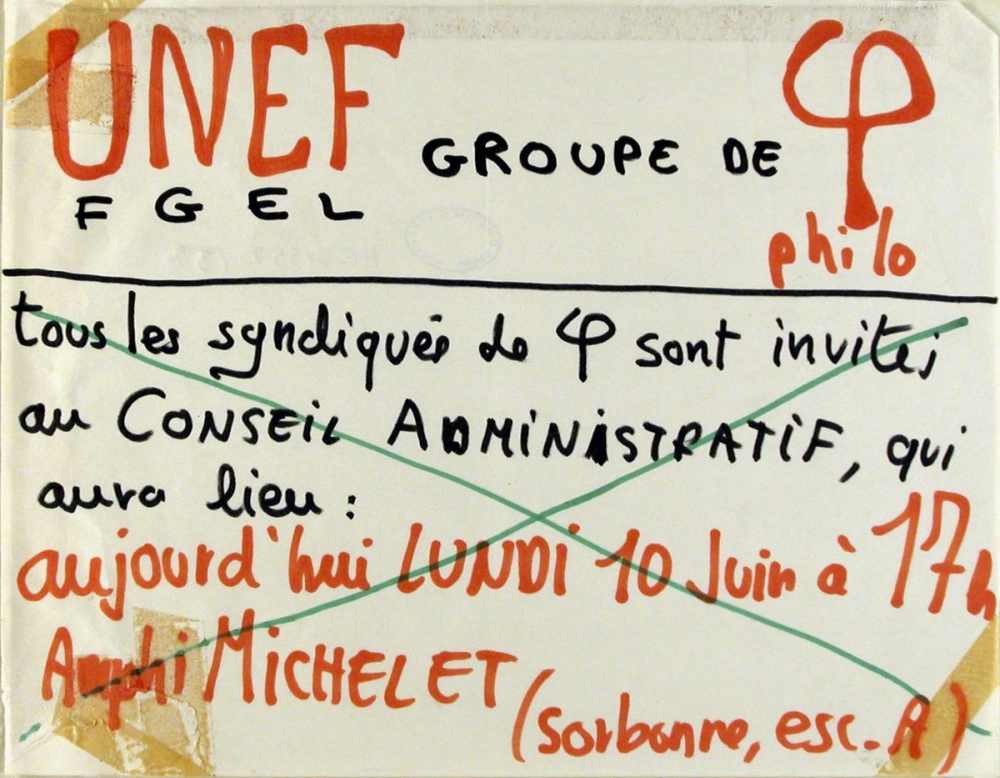 UNEF GROUPE DE φ
F G E L philo
tous les syndiqués de φ sont invités
au CONSEIL ADMINISTRATIF, qui
aura lieu :
aujourd'hui LUNDI 10 Juin à 17h
Amphi MICHELET (sorbonne, esc. A)